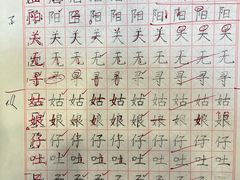 阳 阳 阳 阳 阳 阳 阳 阳 阳
关 关 关 关 关 关 关 关
无 无 无 无 无 无 无 无
寻 寻 寻 寻 寻 寻 寻
姑 姑 姑 姑 姑 姑 姑 姑 姑
娘 娘 娘 娘 娘 娘 娘 娘 娘
仔 仔 仔 仔 仔 仔 仔 仔 仔
吐 吐 吐 吐 吐 吐 吐 吐 吐